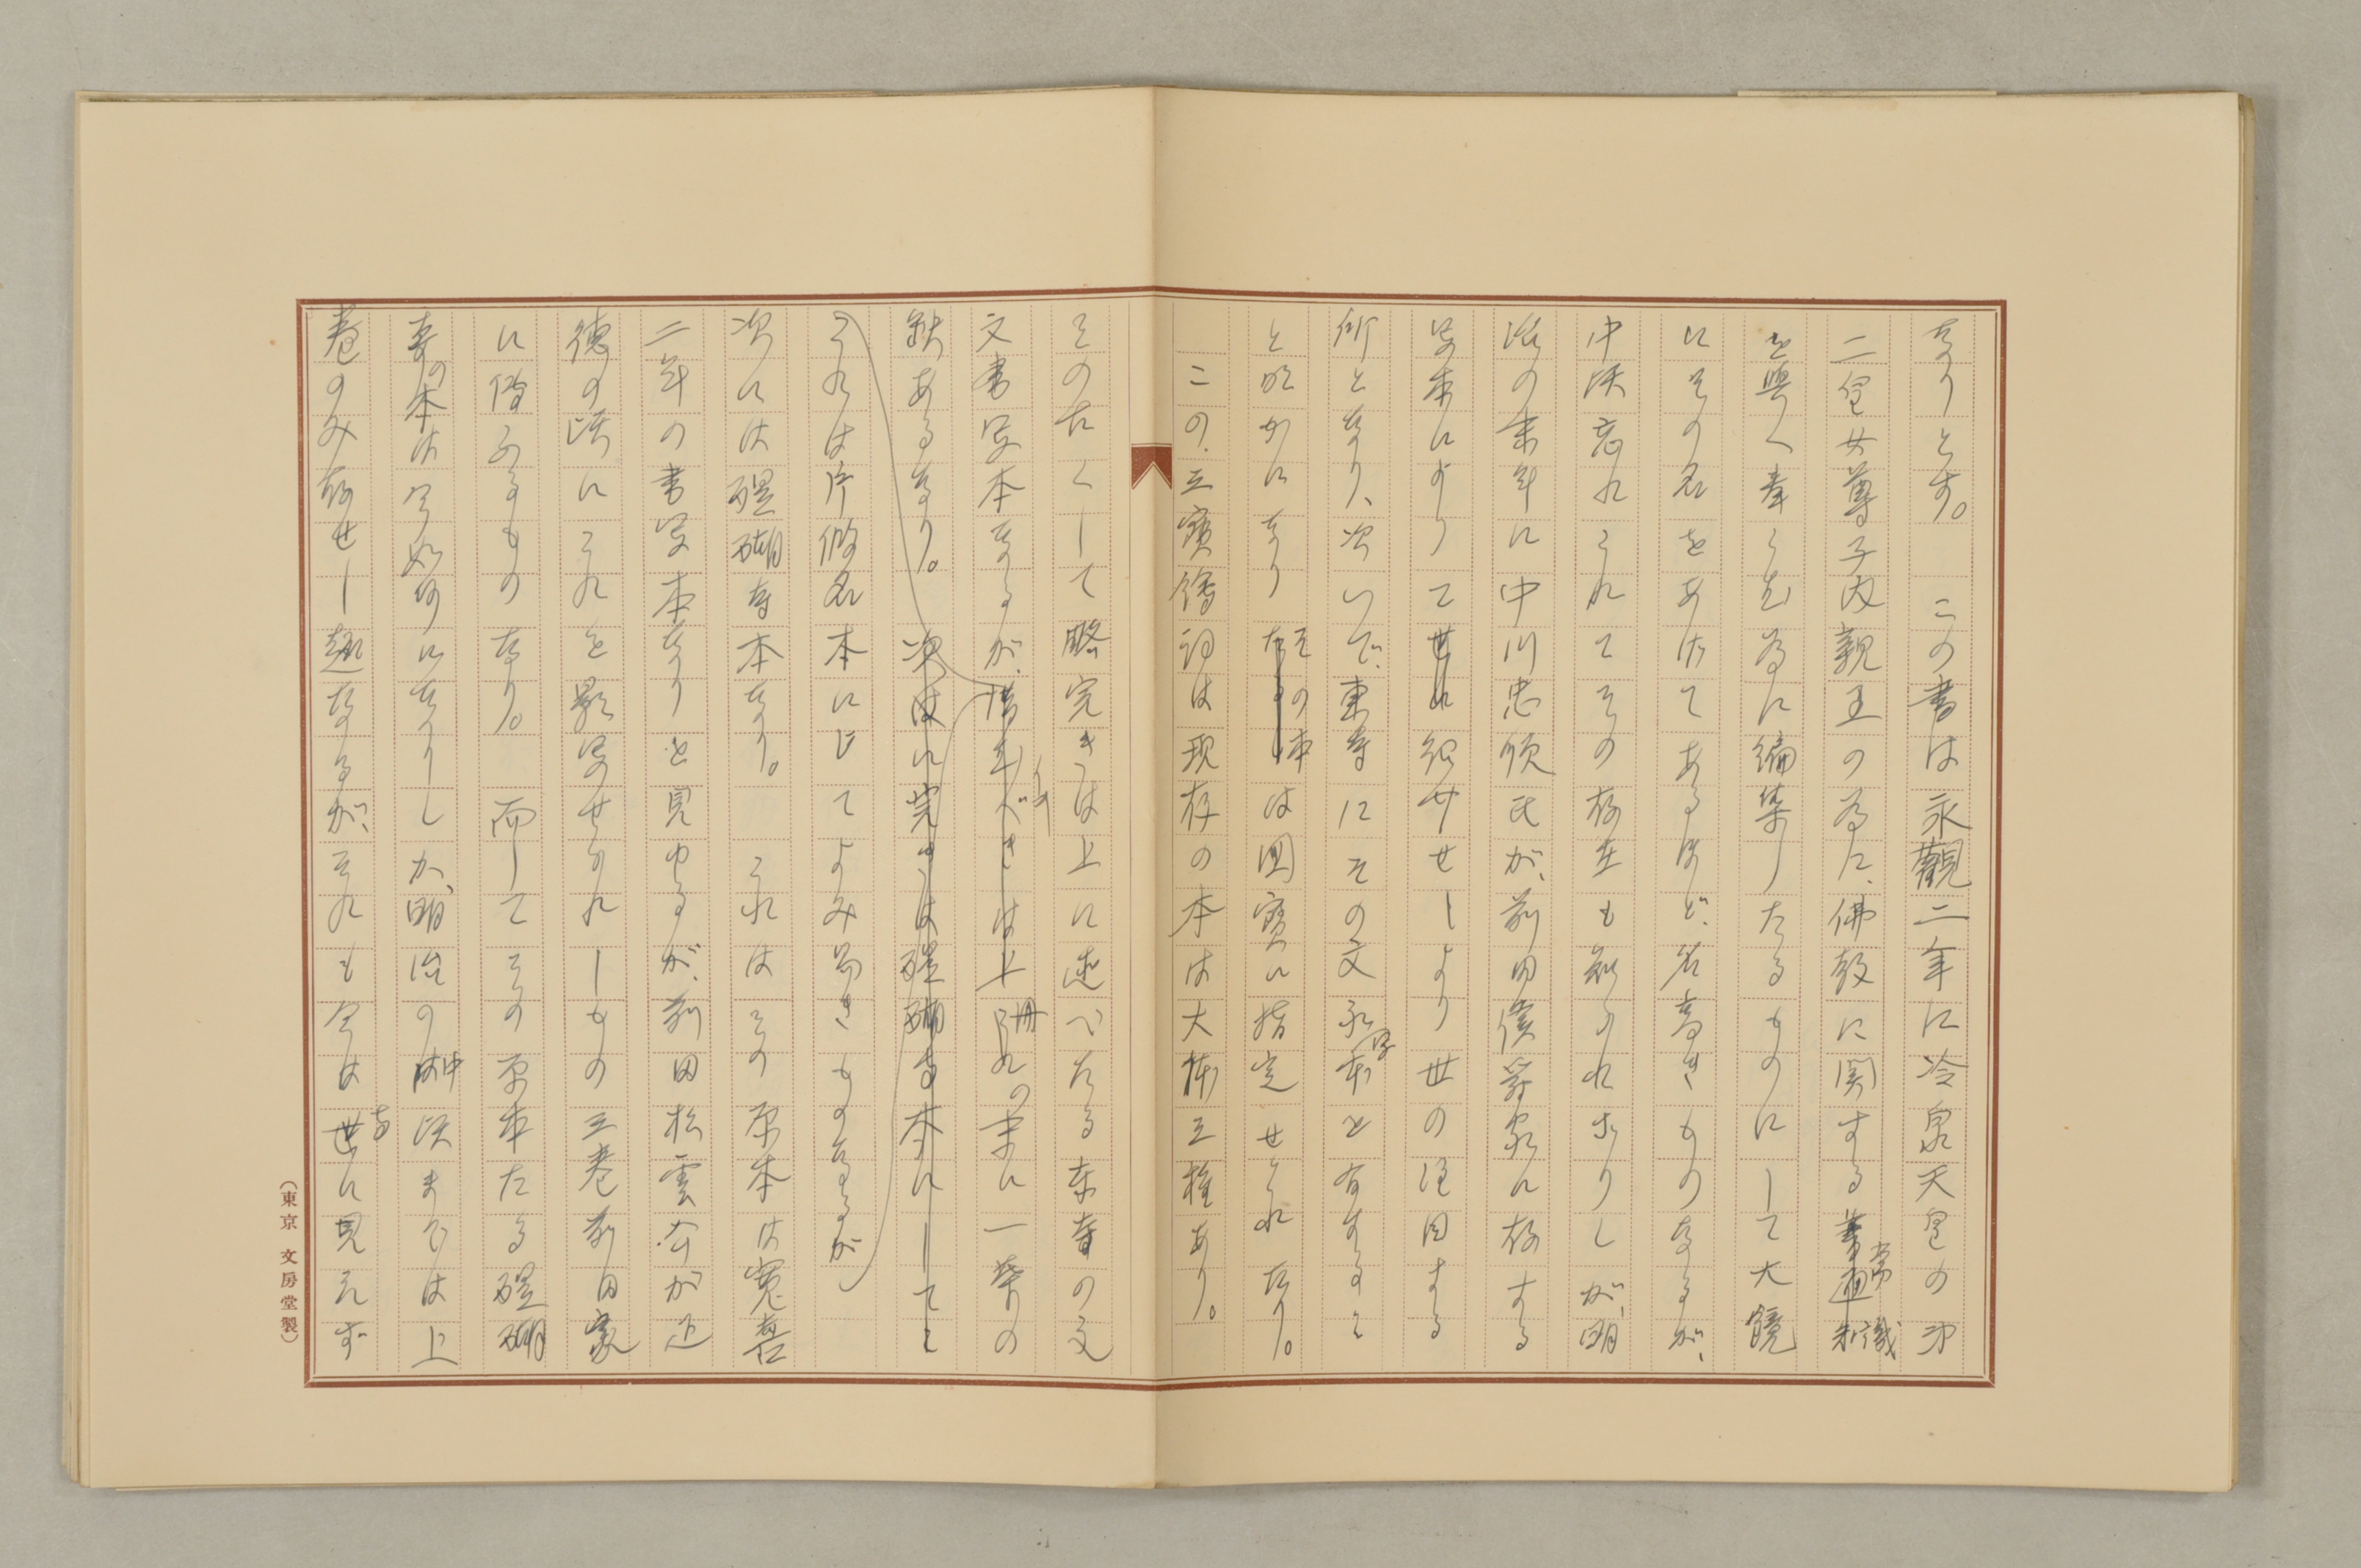 なりとす。　この書は永觀二年に冷泉天皇の第
二皇女尊子内親王の為に、佛教に関する常識
を與へ奉らむ為に編纂したるものにして大鏡
にその名をあげてあるほど、名高きものなるが、
中頃忘れられてその存在も知られざりしが、明
治の末年に中川忠順氏が、前田侯爵家に存する
写本によりて世に紹介せしより世の注目する
所となり、次いで、東寺にその文永写本を有するこ
と明かになりその本は国寳に指定せられたり。
この三寳繪詞は現存の本は大体三種あり。
そのたくして略完きは上に述べたる東寺の文
文書写本なるが、惜むべきは上冊の末に一葉の
缺あるなり。次は醍醐寺本にしてこ
これは片假名本にしてよみ易きものなるが
次には醍醐寺本なり。　これはその原本は寛喜
二年の書写本なりと見ゆるが、前田松雲公が正
徳の頃にこれを影写せられしもの三巻前田家
に傳ふるものなり。　而してその原本たる醍醐
寺の本は今如何になりしか、明治の中頃までは上
巻のみ存せし趣なるが、それも今は世に見えず
（東京　文房堂製）